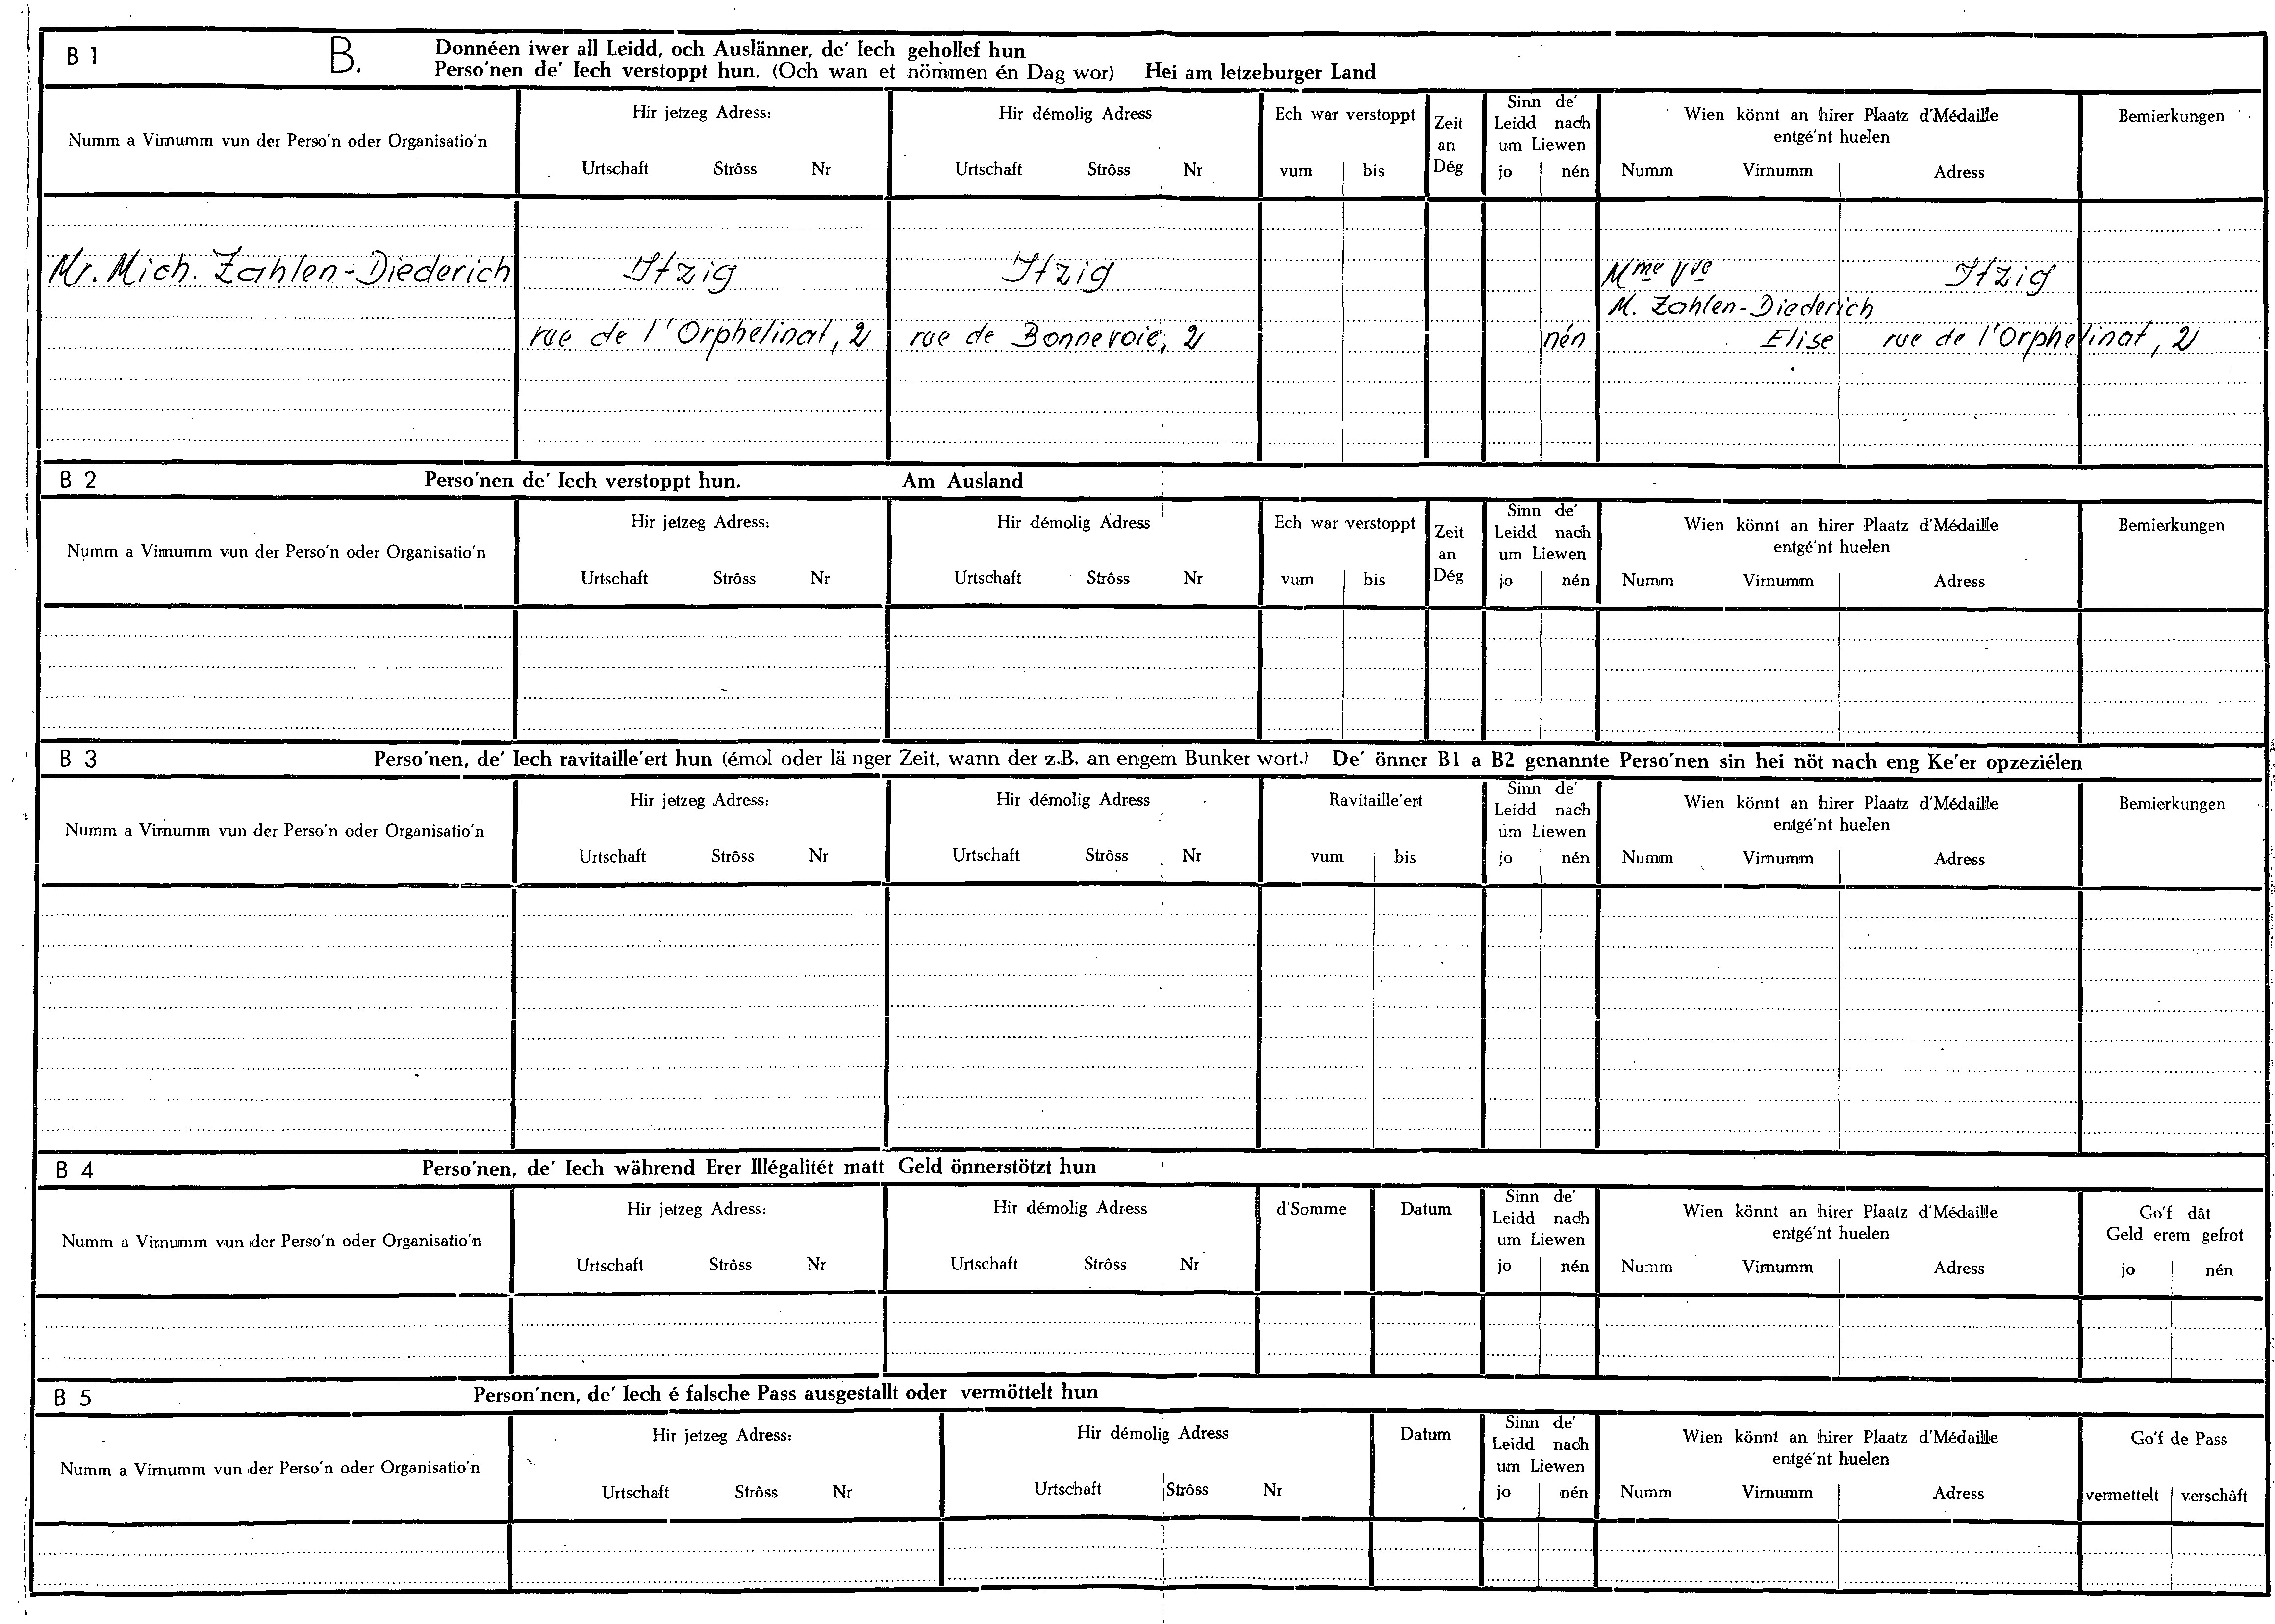 B 1 B. Donnéen iwer all Leidd, och Auslänner, de' Iech gehollef hun
Perso'nen de' Iech verstoppt hun. (Och wan et nömmen én Dag wor) Hei am letzeburger Land
Numm a Virnumm vun der Perso'n oder Organisatio'n
Hir jetzeg Adress:
Urtschaft Strôss Nr
Hir démolig Adress
Urtschaft Strôss Nr
Ech war verstoppt
vum bis
Zeit
an
Dég
Sinn de'
Leidd nach
um Liewen
jo nén
Wien könnt an hirer Plaatz d'Médaille
entgé'nt huelen
Numm Virnumm Adress
Bemierkungen
Mr. Mich. Zahlen-Diederich Itzig Itzig Mme Vve Itzig
M. Zahlen-Diederich
rue de l'Orphelinat, 2 rue de Bonnevoie, 2 nén Elise rue de l'Orphelinat, 2
B 2 Perso'nen de' Iech verstoppt hun. Am Ausland
Numm a Virnumm vun der Perso'n oder Organisatio'n
Hir jetzeg Adress:
Urtschaft Strôss Nr
Hir démolig Adress
Urtschaft Strôss Nr
Ech war verstoppt
vum bis
Zeit
an
Dég
Sinn de'
Leidd nach
um Liewen
jo nén
Wien könnt an hirer Plaatz d'Médaille
entgé'nt huelen
Numm Virnumm Adress
Bemierkungen
B 3 Perso'nen, de' Iech ravitaille'ert hun (émol oder länger Zeit, wann der z.B. an engem Bunker wort.) De' önner B1 a B2 genannte Perso'nen sin hei nöt nach eng Ke'er opzeziélen
Numm a Virnumm vun der Perso'n oder Organisatio'n
Hir jetzeg Adress:
Urtschaft Strôss Nr
Hir démolig Adress
Urtschaft Strôss Nr
Ravitaille'ert
vum bis
Sinn de'
Leidd nach
um Liewen
jo nén
Wien könnt an hirer Plaatz d'Médaille
entgé'nt huelen
Numm Virnumm Adress
Bemierkungen
B 4 Perso'nen, de' Iech während Erer Illégalitét matt Geld önnerstötzt hun
Numm a Virnumm vun der Perso'n oder Organisatio'n
Hir jetzeg Adress:
Urtschaft Strôss Nr
Hir démolig Adress
Urtschaft Strôss Nr
d'Somme
Datum
Sinn de'
Leidd nach
um Liewen
jo nén
Wien könnt an hirer Plaatz d'Médaille
entgé'nt huelen
Numm Virnumm Adress
Go'f dât
Geld erem gefrot
jo nén
B 5 Person'nen, de' Iech é falsche Pass ausgestallt oder vermöttelt hun
Numm a Virnumm vun der Perso'n oder Organisatio'n
Hir jetzeg Adress:
Urtschaft Strôss Nr
Hir démolig Adress
Urtschaft Strôss Nr
Datum
Sinn de'
Leidd nach
um Liewen
jo nén
Wien könnt an hirer Plaatz d'Médaille
entgé'nt huelen
Numm Virnumm Adress
Go'f de Pass
vermettelt verschâft